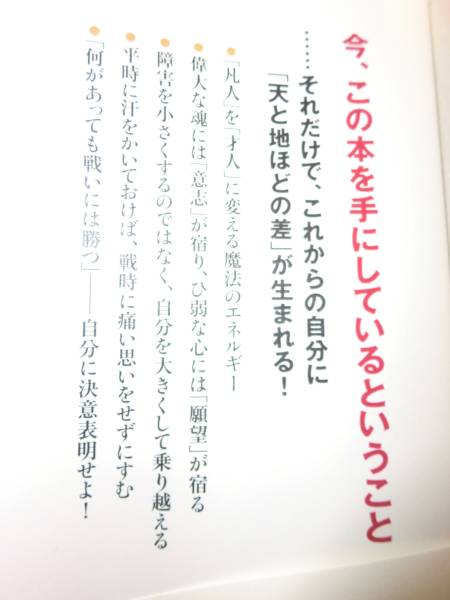 今、この本を手にしているということ
……それだけで、これからの自分に
「天と地ほどの差」が生まれる！
●「凡人」を「才人」に変える魔法のエネルギー
●偉大な魂には「意志」が宿り、ひ弱な心には「願望」が宿る
●障害を小さくするのではなく、自分を大きくして乗り越える
●平時に汗をかいておけば、戦時に痛い思いをせずにすむ
●「何があっても戦いには勝つ」——自分に決意表明せよ！